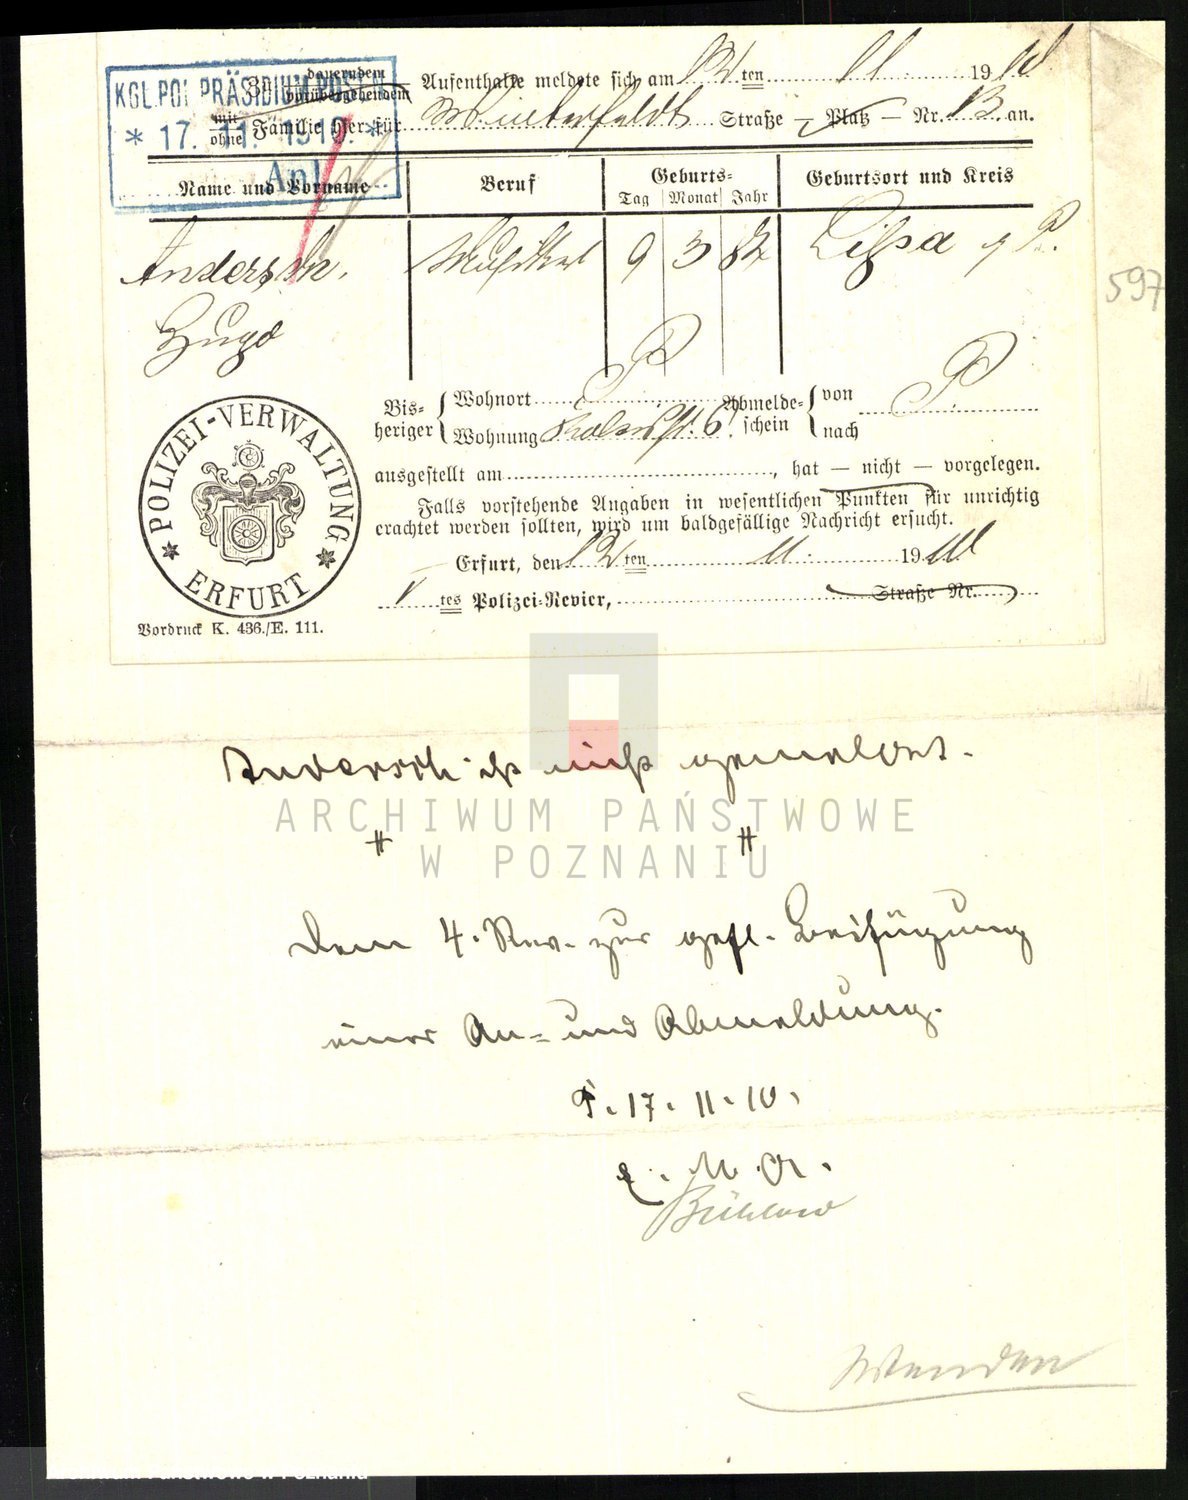 KGL. POL. PRÄSIDIUM POSEN
* 17. 11. 1910. *
Anl.
Zu dauerndem
vorübergehendem Aufenthalte meldete sich am 12 ten 11. 1910
mit
ohne Familie hier für Winterfeldt Straße — Platz — Nr. 13. an.
Name und Vorname Beruf Geburts= Geburtsort und Kreis
Tag Monat Jahr
Andersch, Musiker 9 3 82 Lissa i/P.
Hugo
597
Bis=
heriger
Wohnort P.
Wohnung 6.
Abmelde=
schein
von P.
nach
ausgestellt am , hat — nicht — vorgelegen.
Falls vorstehende Angaben in wesentlichen Punkten für unrichtig
erachtet werden sollten, wird um baldgefällige Nachricht ersucht.
Erfurt, den 12 ten 11. 1910
V tes Polizei=Revier, Straße Nr.
POLIZEI-VERWALTUNG
ERFURT
Vordruck K. 436./E. 111.
Andersch ist nicht gemeldet.
ARCHIWUM PAŃSTWOWE
W POZNANIU
Dem 4. Rev. zur gefl. Beifügung
einer An= und Abmeldung.
P. 17. 11. 10.
E. M. A.
Archiwum Państwowe w Poznaniu